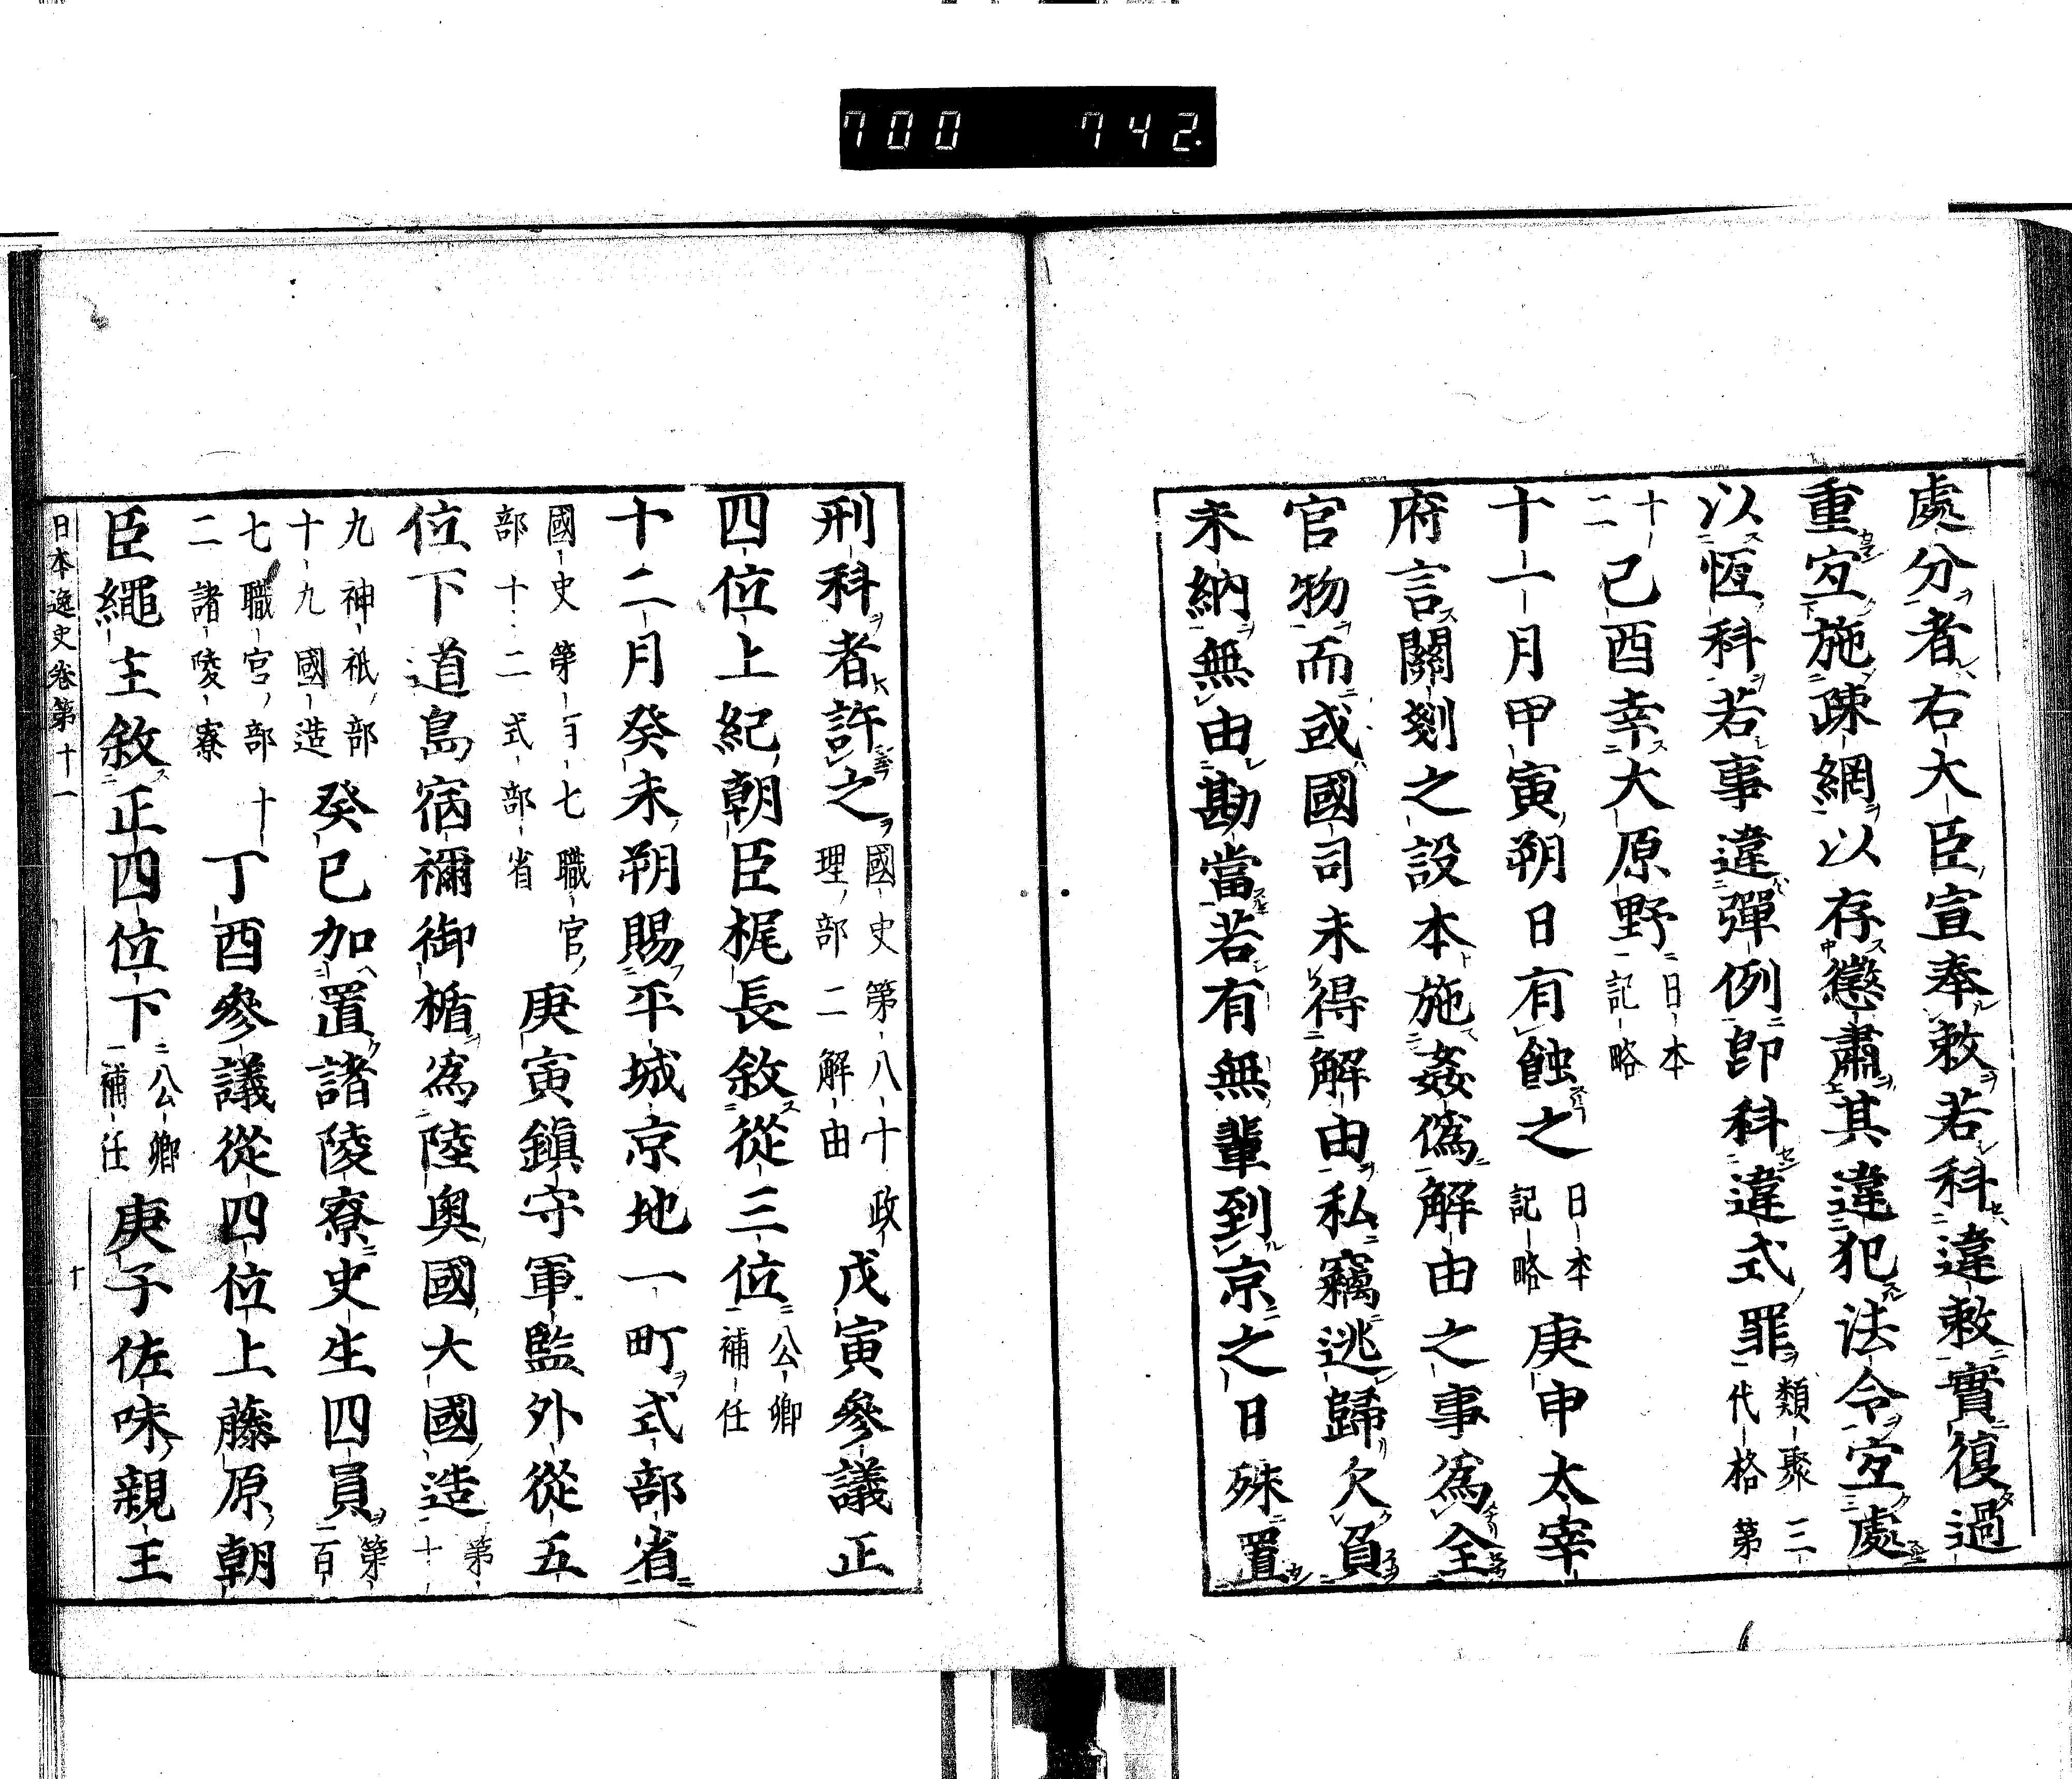 700 742
處分者右大臣宣奉敕若科違敕實復過
重宜施疎網以存懲肅其違犯法令宜處
以恆科若事違彈例即科違式罪類聚三代格第
十二己酉幸大原野日本記略
十一月甲寅朔日有蝕之日本記略庚申太宰
府言關剗之設本施姦僞解由之事爲全
官物而或國司未得解由私竊逃歸欠負
未納無由勘當若有無輩到京之日殊置
刑科者許之國史第八十政理部二解由戊寅參議正
四位上紀朝臣梶長敘從三位公卿補任
十二月癸未朔賜平城京地一町式部省
國史第百七職官部十二式部省庚寅鎮守軍監外從五
位下道島宿禰御楯爲陸奧國大國造第十
九神祇部十九國造癸巳加置諸陵寮史生四員第百
七職官部十二諸陵寮丁酉參議從四位上藤原朝
臣繩主敘正四位下公卿補任庚子佐味親王
日本逸史卷第十一 十